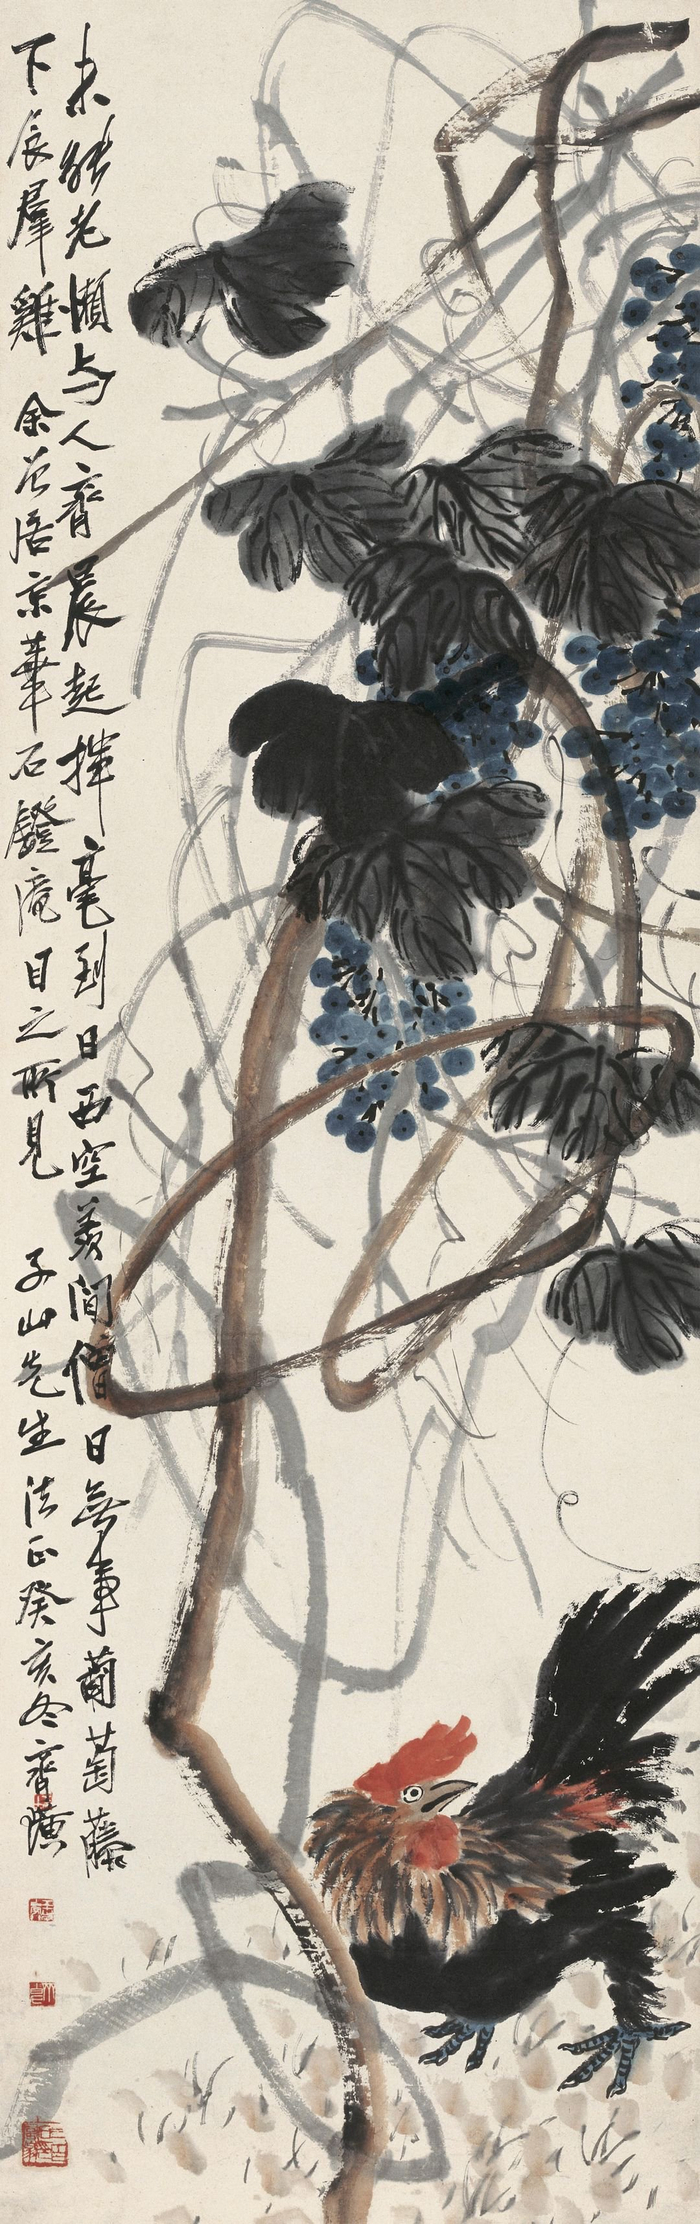 未能老懶与人齊晨起揮毫到日西空羨閒僧日無事葡萄藤
下辰群雞 余曾居京華石鐙庵目之所見 子山先生法正癸亥冬齊璜